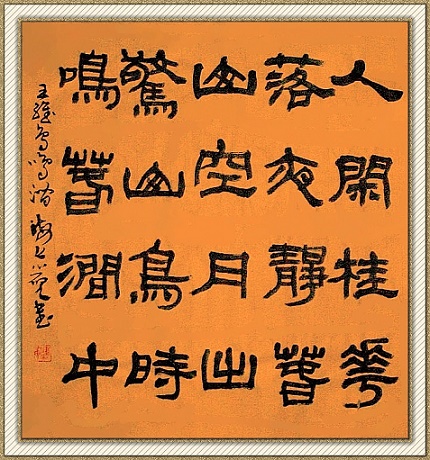 人閑桂花
落夜靜春
山空月出
驚山鳥時
鳴春澗中
王維鳥鳴澗